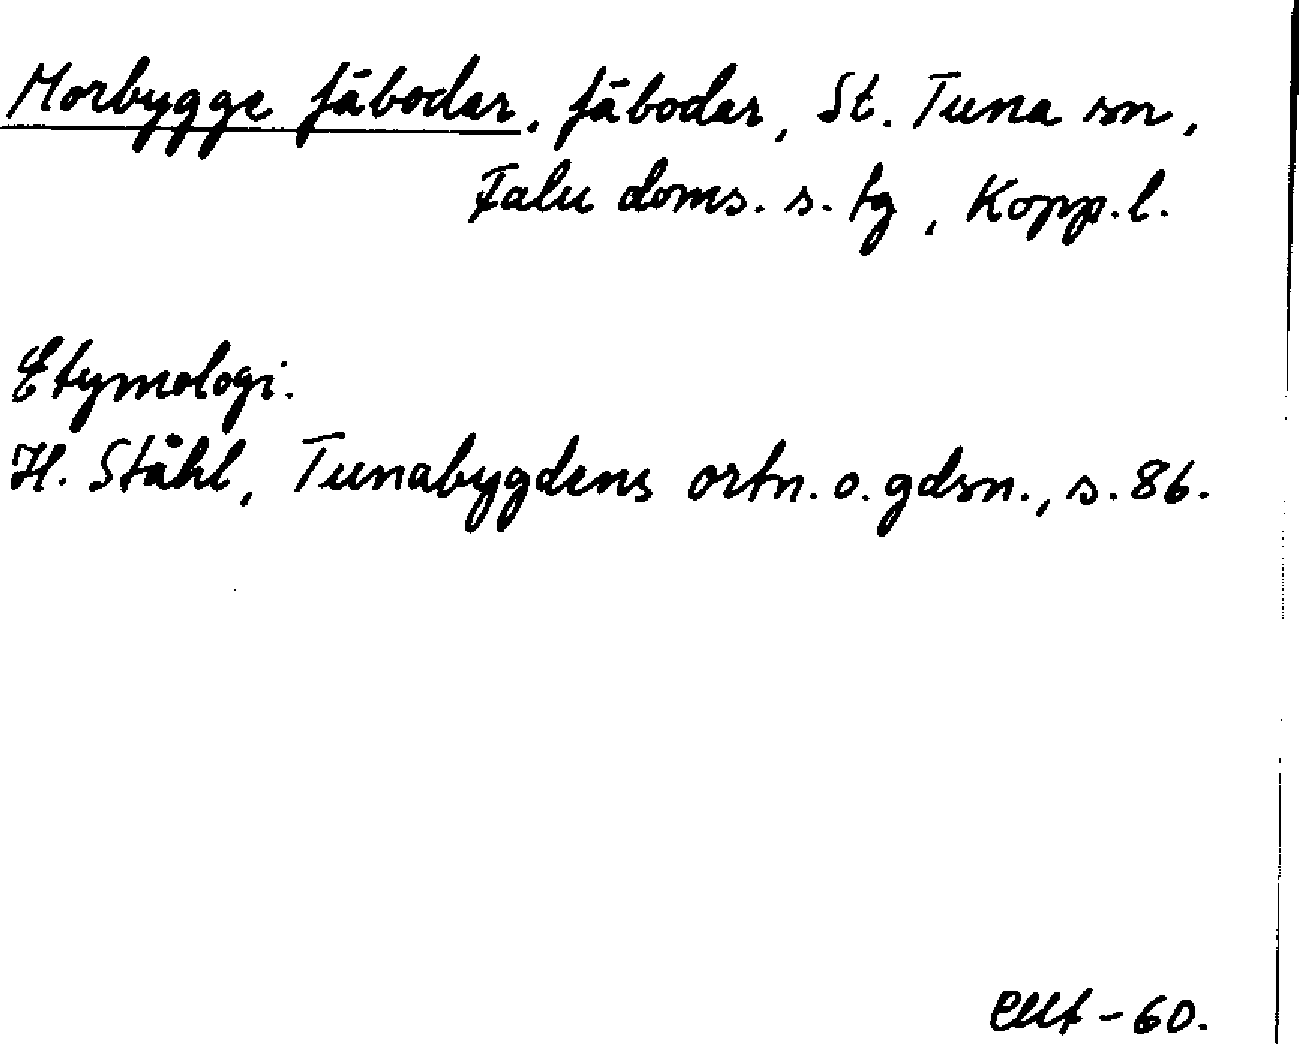 Morbygge fäbodar, fäbodar, St. Tuna sn,
Falu doms. s. tg, Kopp. l.
Etymologi.
H. Ståhl, Tunabygdens ortn. o. gdsn., s. 86.
-60.